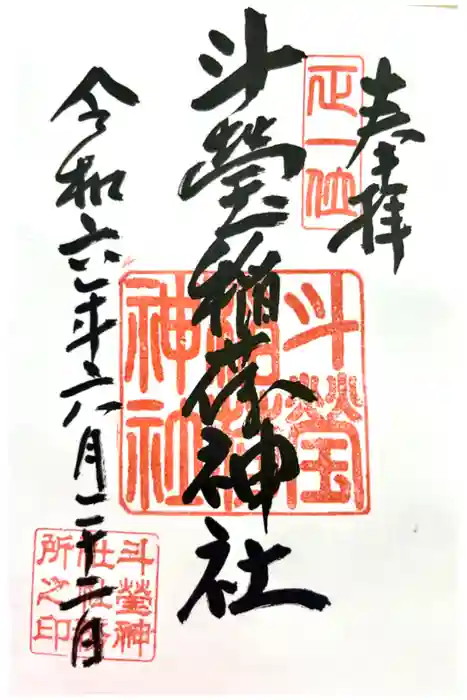 奉拝
正一位
斗瑩稲荷神社
斗瑩
稲荷
神社
令和六年六月二十二日
斗瑩神
社社務
所之印